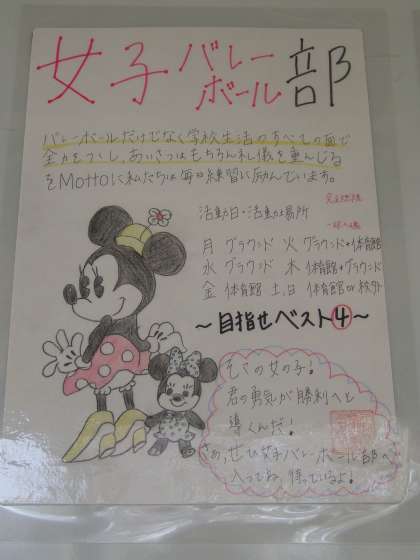 女子バレーボール部
バレーボールだけでなく学校生活のすべての面で
全力をつくし、あいさつはもちろん礼儀を重んじる
をMottoに私たちは毎日練習に励んでいます。
活動日・活動場所
月 グラウンド 火 グラウンド・体育館
水 グラウンド 木 体育館・グラウンド
金 体育館 土,日 体育館or校外
〜目指せベスト④〜
そこの女の子!
君の勇気が勝利へと
導くんだ!
さあ、ぜひ女子バレーボール部へ
入ってね、待っているよ!